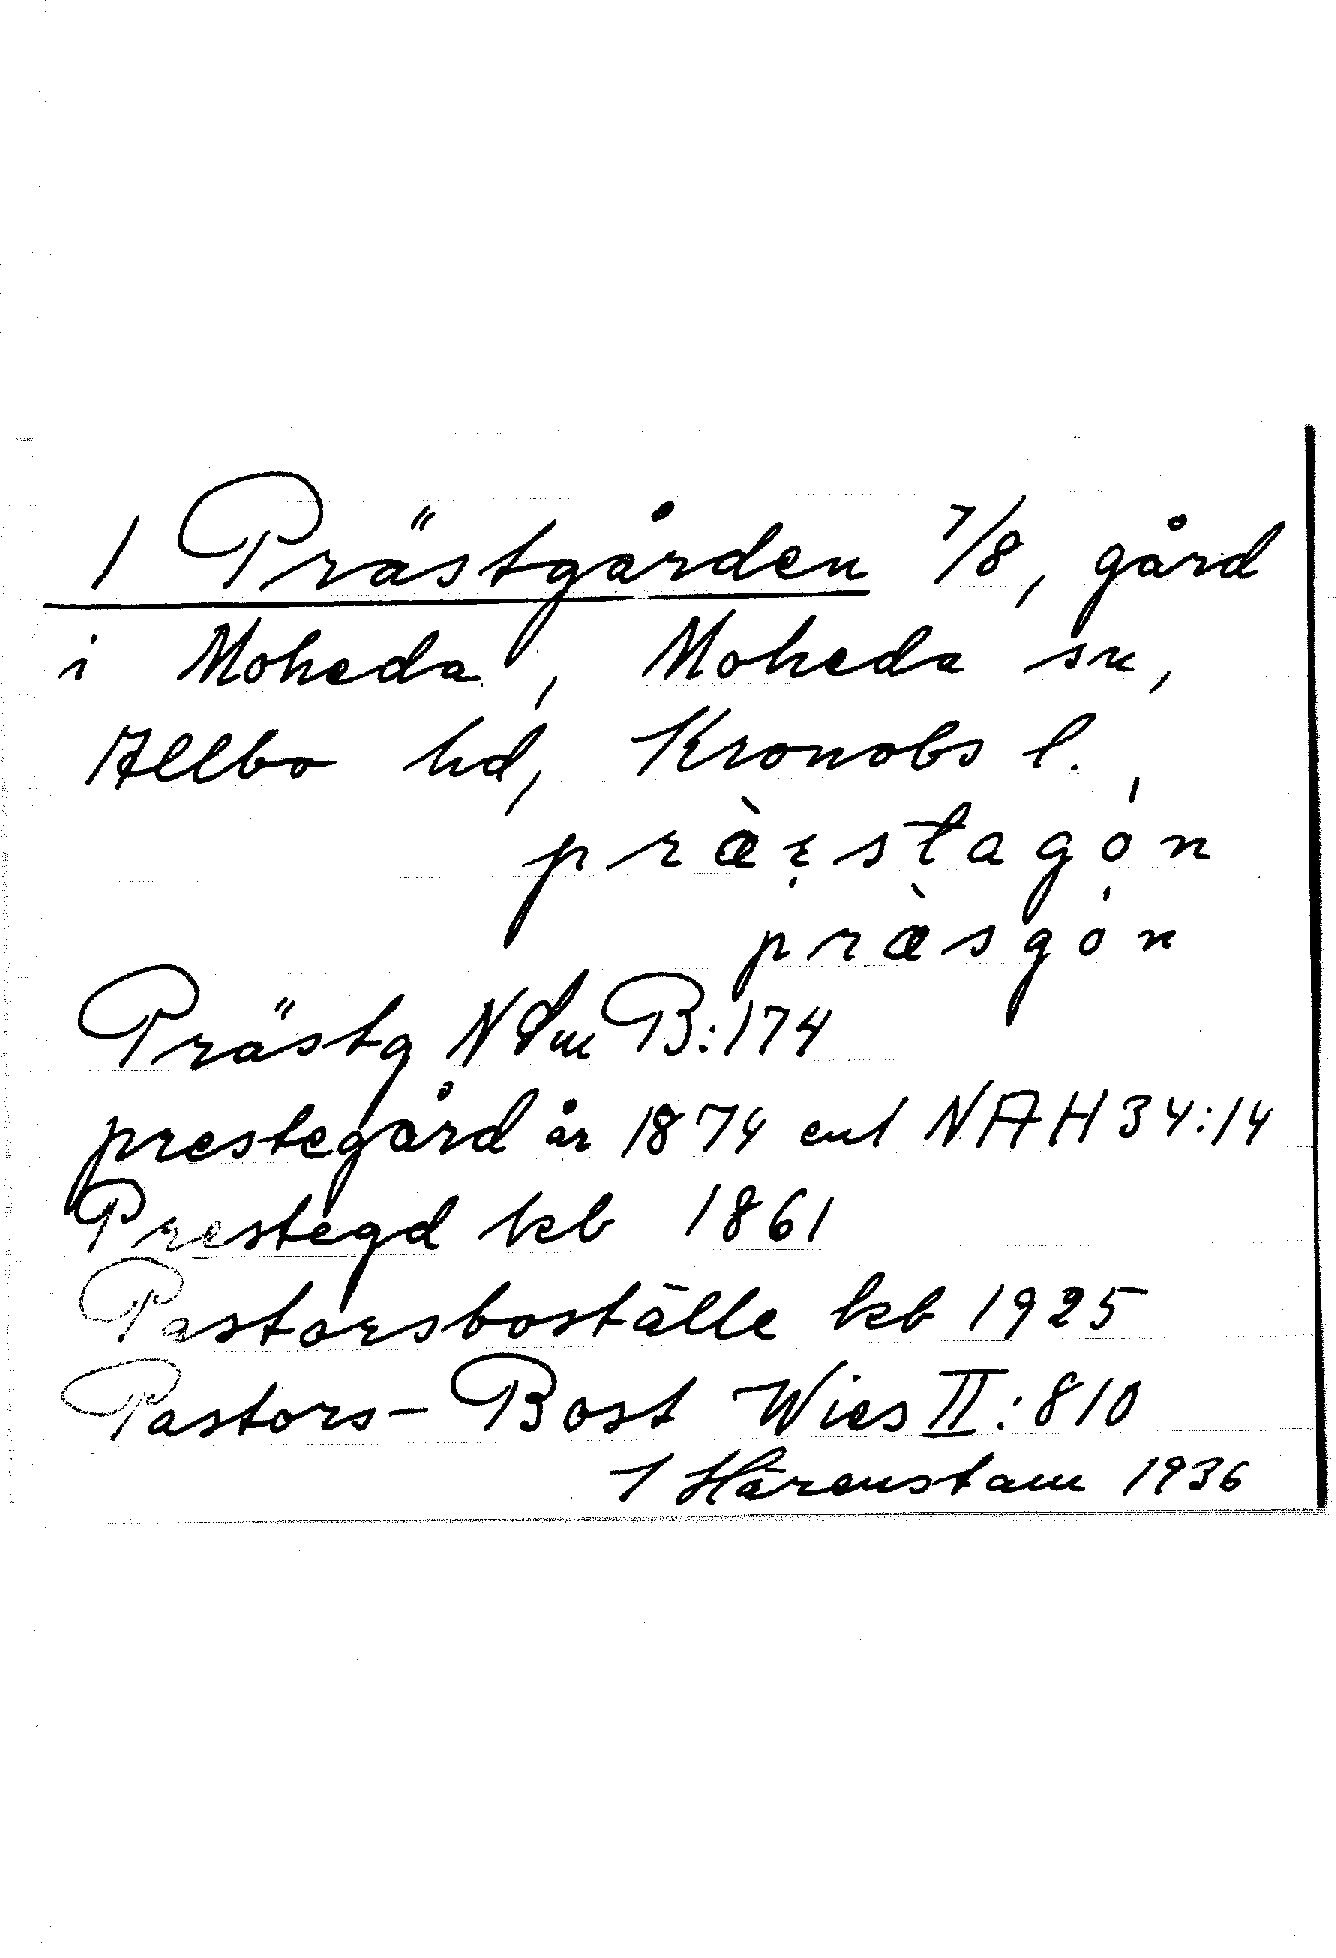 1 Prästgården 7/8, gård
i Moheda, Moheda sn,
Allbo hd, Kronobs l.
præ̀ɛstagón
præ̀sgón
Prästg B:174
prestegård år 1874 enl NAH 34:14
Prestegd kb 1861
Pastorsboställe kb 1925
Pastors-Bost Wies II:810
I Härenstam 1936